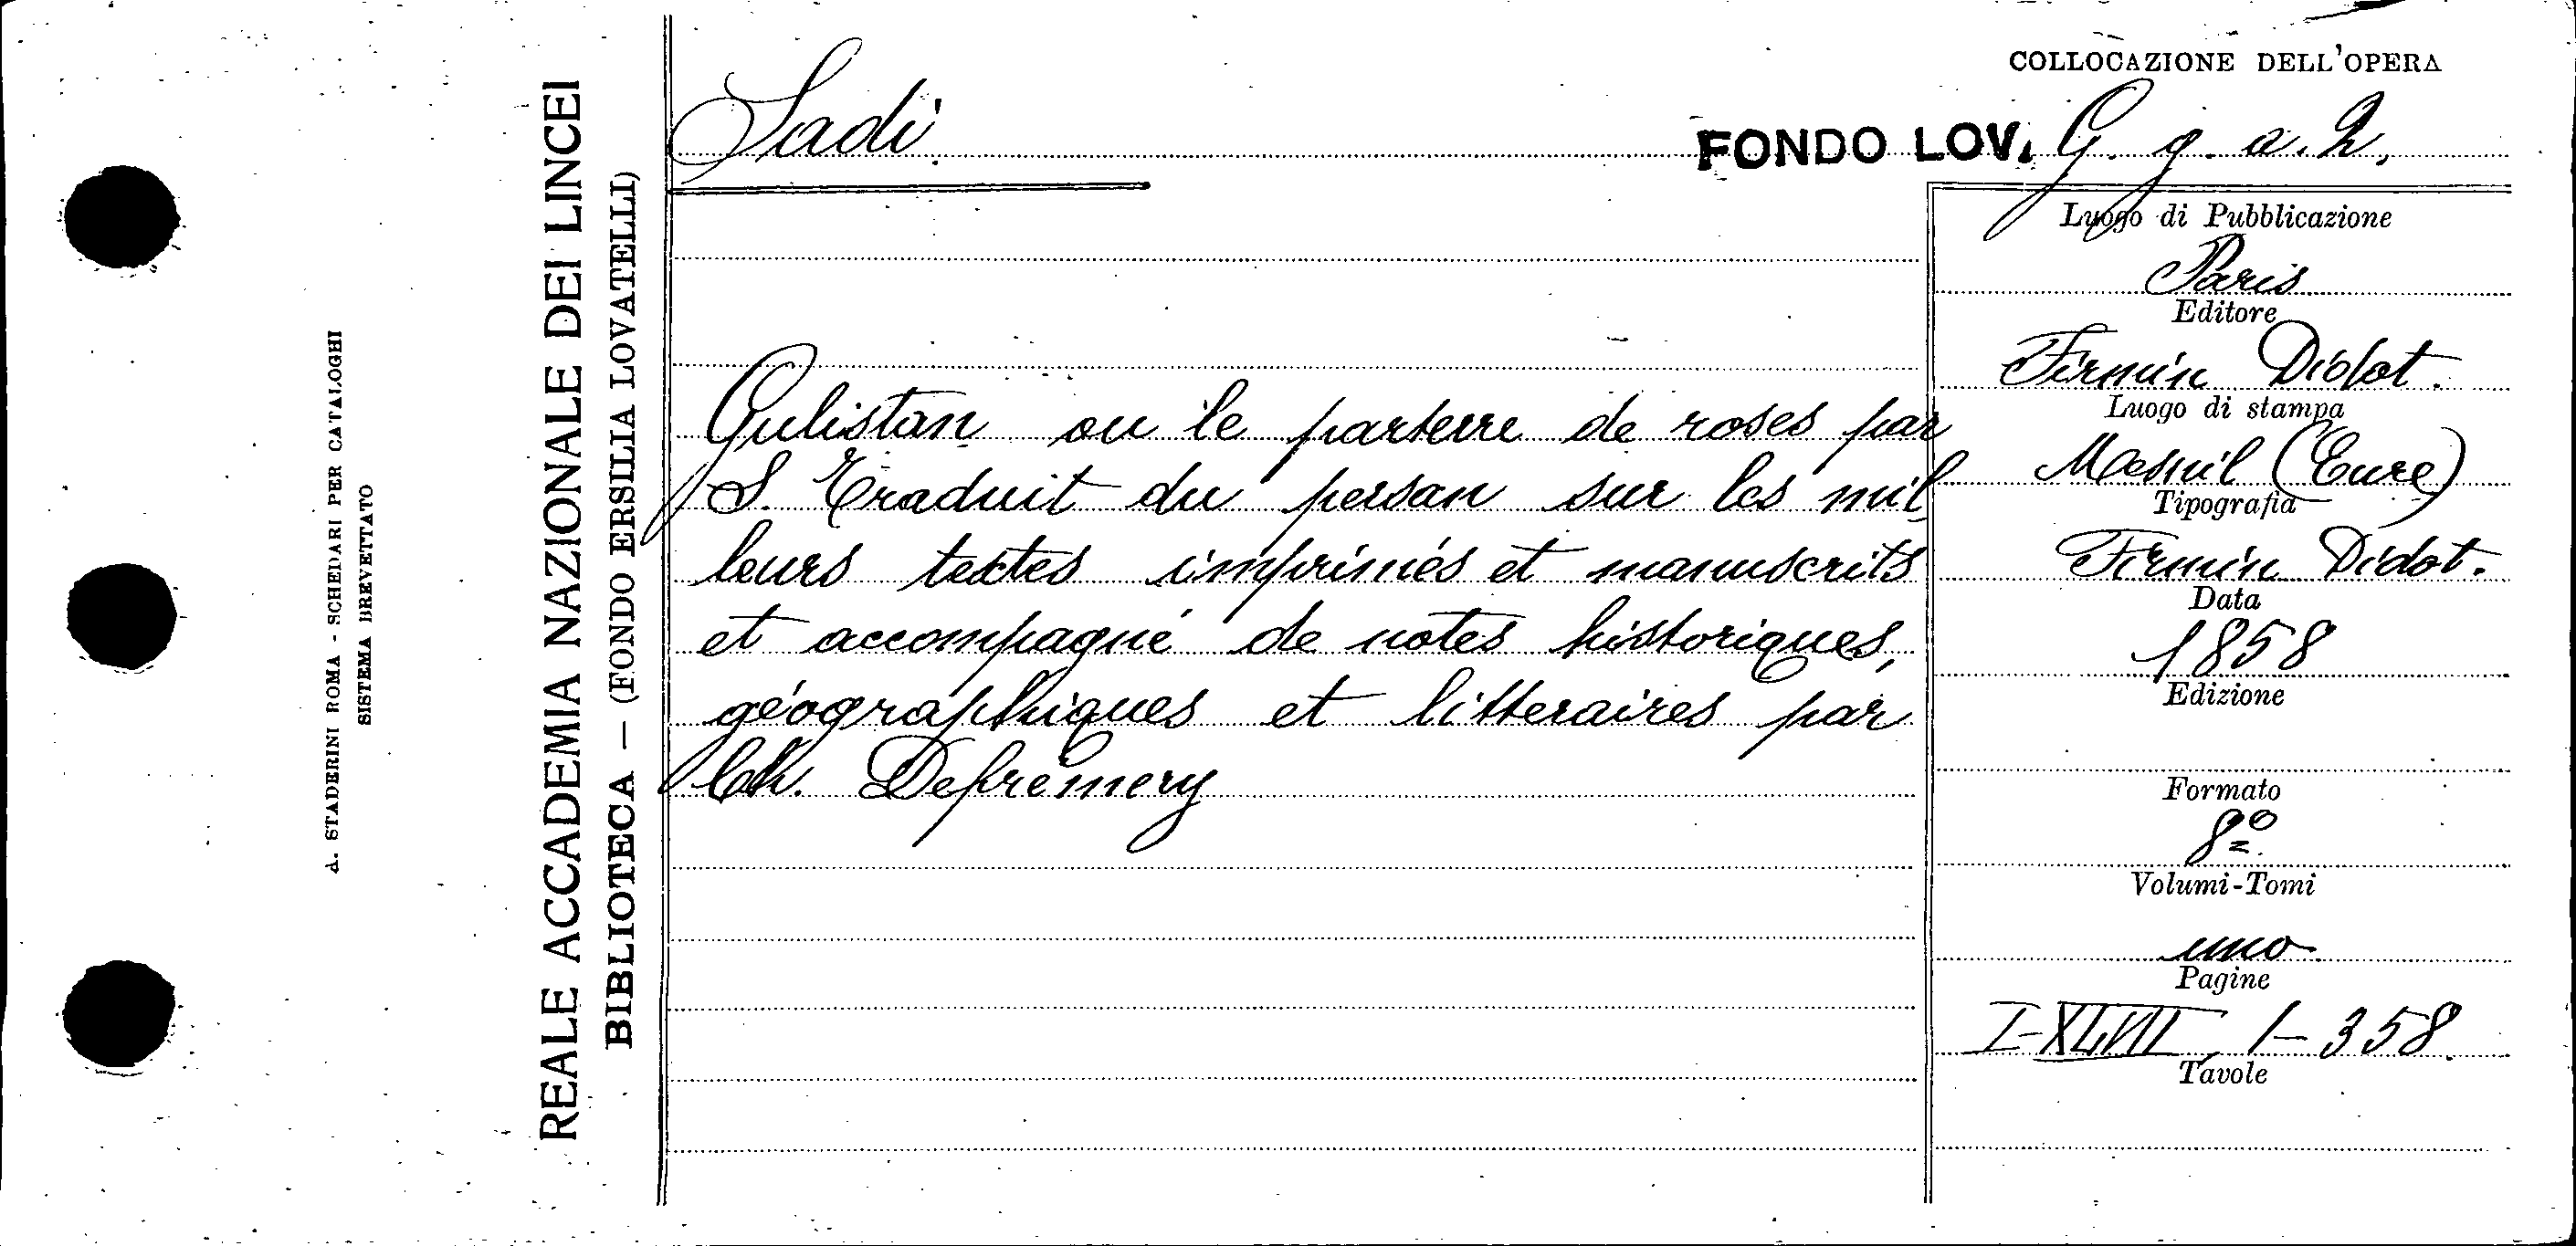 REALE ACCADEMIA NAZIONALE DEI LINCEI
BIBLIOTECA — (FONDO ERSILIA LOVATELLI)
A. STADERINI ROMA - SCHEDARI PER CATALOGHI
SISTEMA BREVETTATO
Sadi
COLLOCAZIONE DELL'OPERA
FONDO LOV. G. g. a. 2.
Gulistan ou le parterre de roses par
S. Traduit du persan sur les mil
leurs textes imprimés et manuscrits
et accompagné de notes historiques,
géographiques et litteraires par
Ch. Defrémery
Luogo di Pubblicazione
Paris
Editore
Firmin Didot.
Luogo di stampa
Mesnil (Eure)
Tipografia
Firmin Didot.
Data
1858
Edizione
Formato
8º
Volumi-Tomi
uno
Pagine
I-XLVII, 1-358.
Tavole